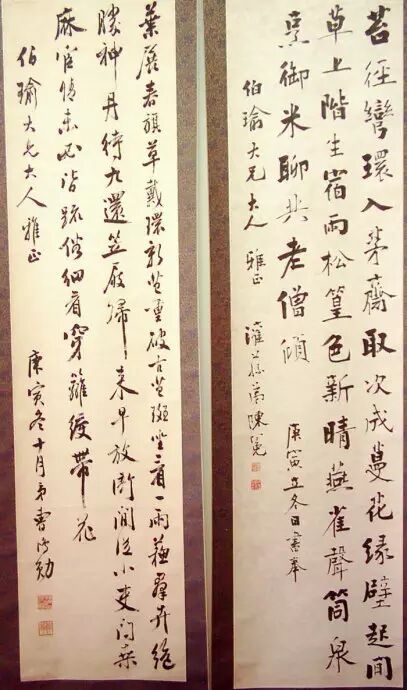 苔径彎環入茅齋取次成蔓花緣壁起閒
草上階生宿雨松篁色新晴燕雀聲筒泉
烹御米聊共老僧傾 庚寅立冬日書奉
伯瑜大兄大人 雅正 灌蓀弟陳冕
葉展春旗草戴環新芒重破古苔斑坐看一雨蘇羣卉絶
勝神丹待九還笠屐歸來早放衙閒從小吏問桑
麻官情未必皆疏俗細看穿籬綬帶花
伯瑜大兄大人 雅正 庚寅冬十月弟曹鴻勛